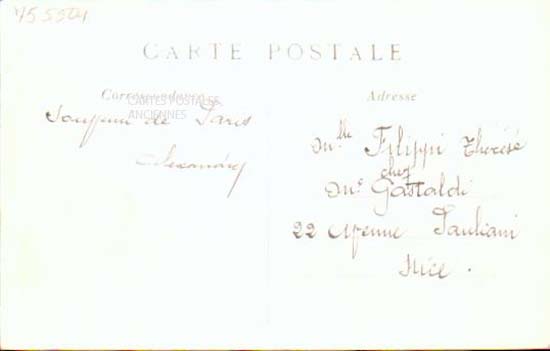 45 5504
CARTE POSTALE
Correspondance
CARTES POSTALES
ANCIENNES
Adresse
de Paris
Mlle Filippi Thérèse
chez
Me Gastaldi
22 Avenue Pauliani
Nice.